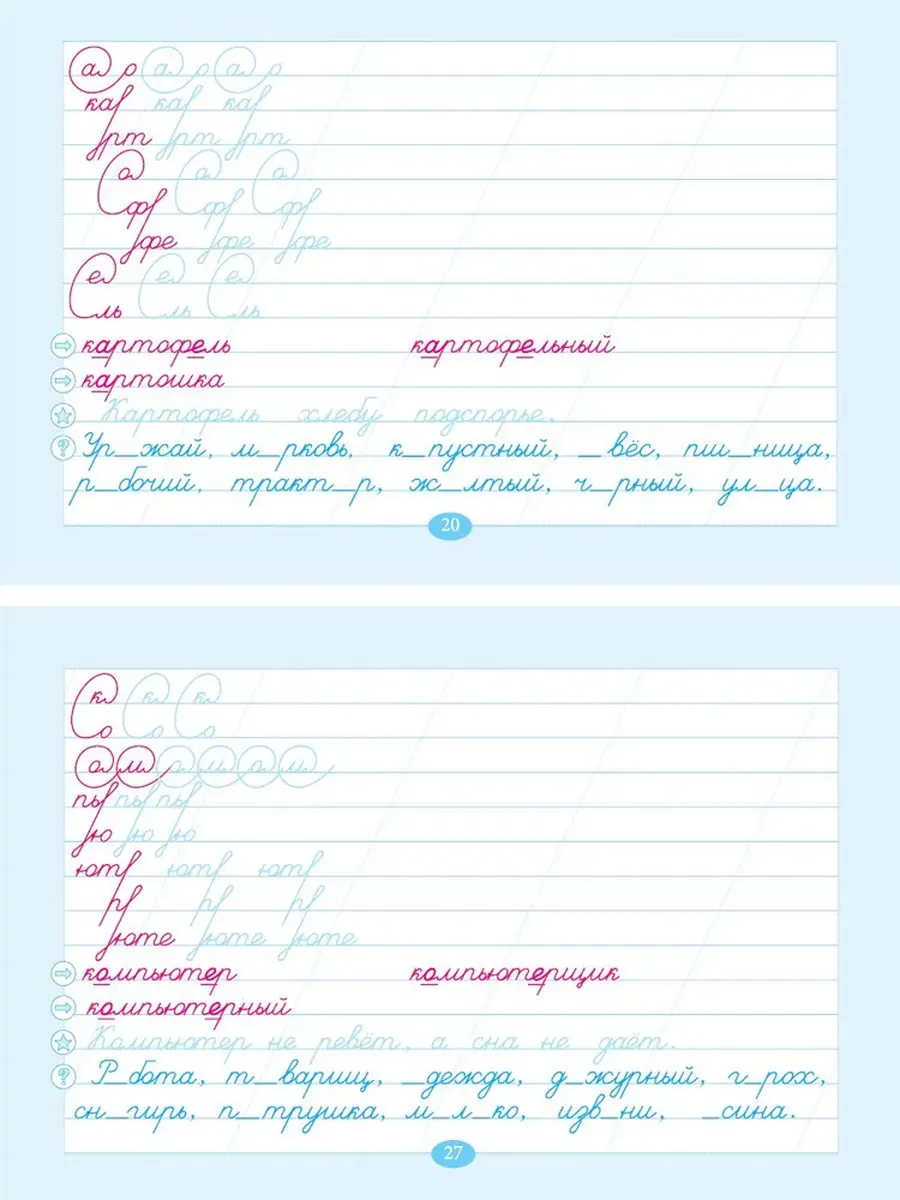 а р а р а р
кар кар кар
рт рт рт
о о о
оф оф оф
фе фе фе
ел ел ел
ль ль ль
картофель картофельный
картошка
Картофель хлебу подспорье.
Ур_жай, м_рковь, к_пустный, _вёс, пш_ница,
р_бочий, тракт_р, ж_лтый, ч_рный, ул_ца.
20
к к к
о о о
о м о м о м
пь пь пь
ю ю ю
ют ют ют
р р р
юте юте юте
компьютер компьютерщик
компьютерный
Компьютер не ревёт, а сна не даёт.
Р_бота, т_варищ, _дежда, д_журный, г_рох,
сн_гирь, п_трушка, м_л_ко, изв_ни, _сина.
27